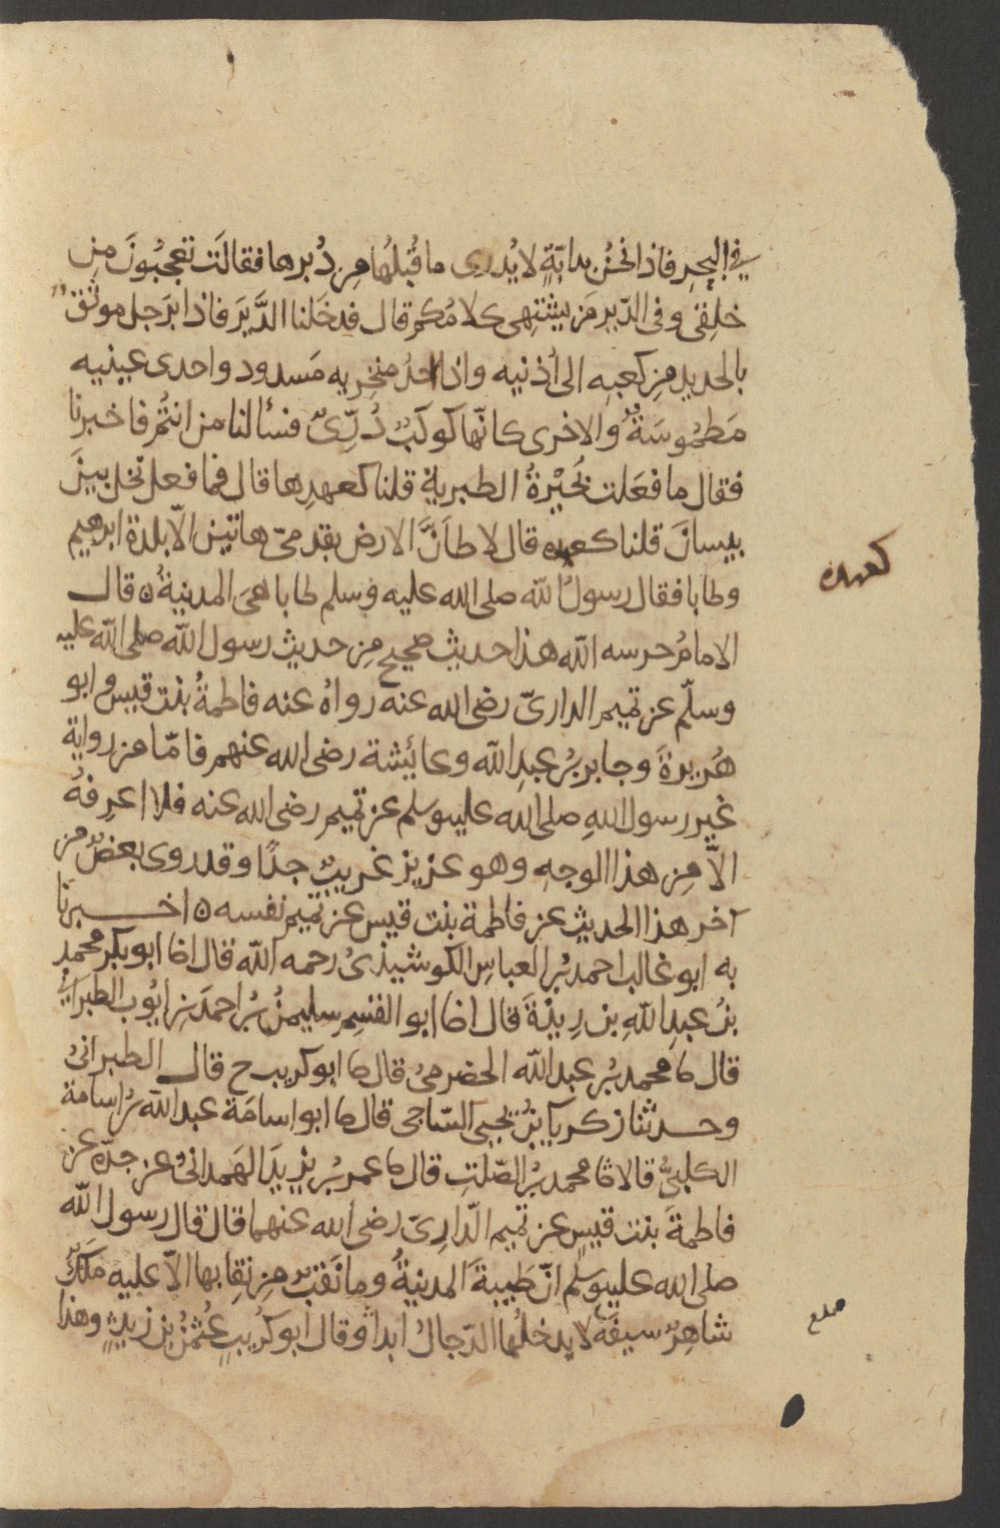 في البحر فاذا نحن بدابةٍ لا يُدرى ما قُبلُها مِن دُبرها فقالَت تعجبُونَ مِن
خلِقى وفى الدّير مَن يشتهِى كلامُكم قال فدخَلنا الدَّيرَ فاذا برَجل موثَقٌ
بالحديد مِن كعبِه الى أُذنيه واذا احدُ منخِريه مَسدود واحدى عينيه
مَطمُوسَةٌ والاخرى كانّها كوكبٌ دُرّىٌ فسألنا من انتُم فاخبرنا
فقال ما فعَلت بُحَيْرةُ الطبرية قلنا كعهدِها قال فما فعل نخل بينَ
بيسانَ قلنا كعهده قال لاطأنَّ الارض بقدمىّ هاتين الّا بلدة ابرهيم
وطابا فقال رسولُ الله صلى الله عليه وسلم طابا هى المدينةُ ه قال
الامامُ حرسه الله هذا حديث صحيح مِن حديث رسول الله صلى الله عليه
وسلّم عن تميم الدارىّ رضى الله عنه رواهُ عنه فاطمةُ بنت قيس وابو
هُريرةَ وجابر بنُ عبدِ الله وعائشة رضى الله عنهم فامّا من رواية
غير رسول اللهِ صلى الله عليه وسلم عن تميم رضى الله عنه فلا اعرِفهُ
الّا مِن هذا الوجهِ وهو عزيز غريبٌ جدًا وقد روى بعضٌ من
آخر هذا الحديث عن فاطمة بنت قيس عن تميم نفسه ه اخبرنَا
به ابو غالب احمد بنُ العباسِ الكوشيذىُ رحمه الله قال انا ابو بكر محمد
بنُ عبدِ اللهِ بن رِيذةَ قال انا ابو القسِم سليمنُ بنُ احمدَ بنِ ايّوب الطبرانىُّ
قال نا محمد بنُ عبد الله الحضرمىُ قال نا ابو كريب ح قال الطبرانىُ
وحدثنا زكريا بنُ يحيى السّاجى قال نا ابو اسامَة عبد الله بنُ اسامة
الكلبىُّ قالا ثنا محمد بنُ الصّلتِ قال نا عمر بنُ يزيدَ الهَمدانىُ عن جدّه عن
فاطمةَ بنت قيسٍ عن تميم الدّارِىّ رضى الله عنهما قال قال رسول الله
صلى الله عليه وسلم انّ طَيبةَ المدينةُ وما نَقبٌ مِن نِقابها الّا عليه مَلَكٌ
شاهِرٌ سيفَه لا يدخلُها الدّجالُ ابداً وقال ابو كُريبٍ عُثمنُ بن زيدٍ وهذا
كعهده